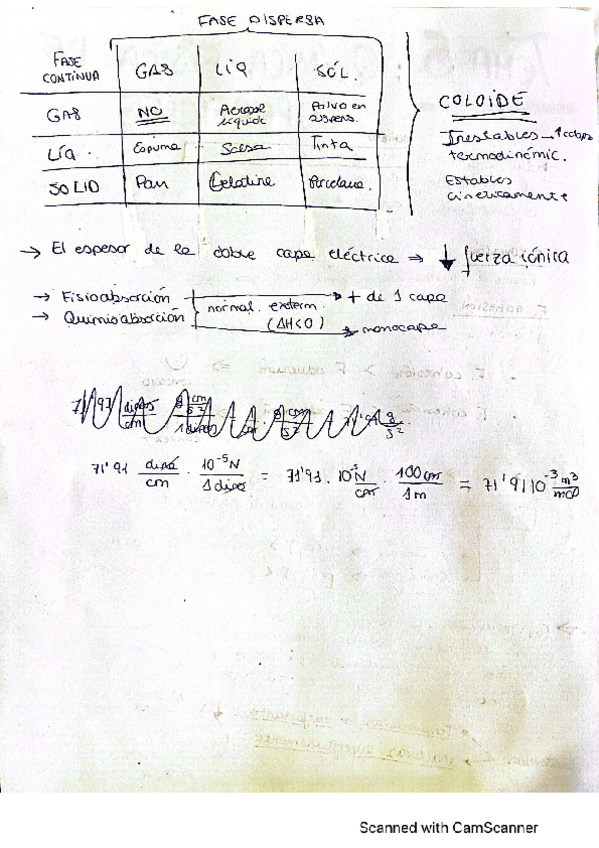 FASE DISPERSA
FASE CONTINUA GAS LIQ SÓL.
GAS NO Aerosol líquido Polvo en suspens.
LÍQ. Espuma Salsa Tinta
SOLID Pan Gelatine Porcelana.
COLOIDE
Inestables → 1
termodinámic.
Estables
cineticamente
→ El espesor de la doble capa eléctrica ⇒ ↓ fuerza iónica
→ Fisioabsorción → + de 1 capa
→ Quimioabsorción → monocapa
normal. exterm.
(ΔH<0)
71'91 dinas/cm · 10⁻⁵N/1 dina = 71'91 · 10⁻⁵ N/cm · 100cm/1m = 71'91 10⁻³ m³/mol
Scanned with CamScanner